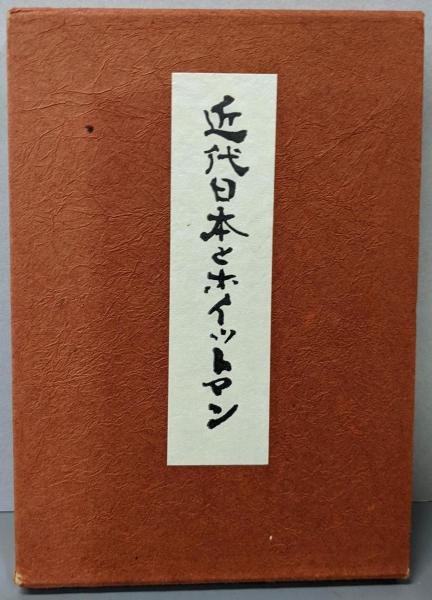 近代日本とホイットマン